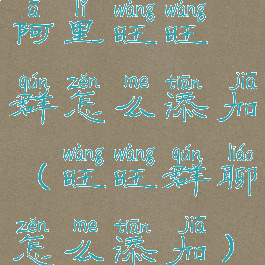 ā lǐ wàng wàng
阿里旺旺
qún zěn me tiān jiā
群怎么添加
wàng wàng qún liáo
（旺旺群聊
zěn me tiān jiā
怎么添加）